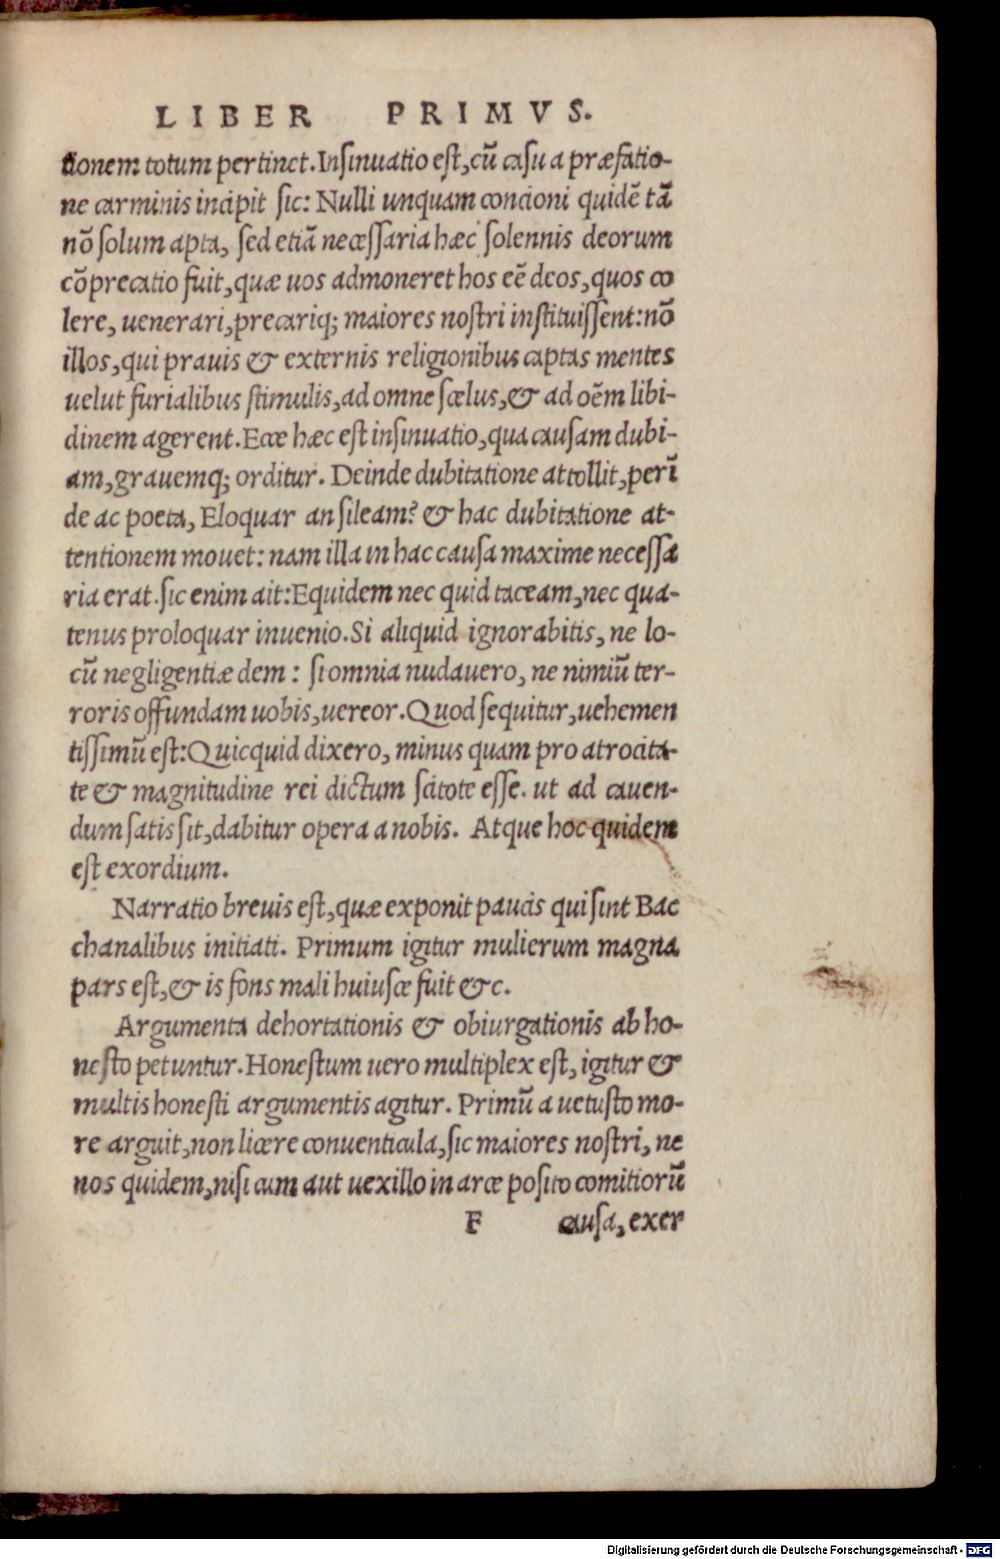 LIBER PRIMVS.
tionem totum pertinet. Insinuatio est, cũ casu a præfatio-
ne carminis incipit sic: Nulli unquam concioni quidẽ tã
nõ solum apta, sed etiã necessaria hæc solennis deorum
cõprecatio fuit, quæ uos admoneret hos eẽ deos, quos co
lere, uenerari, precariq; maiores nostri instituissent: nõ
illos, qui prauis & externis religionibus captas mentes
uelut furialibus stimulis, ad omne scelus, & ad oẽm libi-
dinem agerent. Ecce hæc est insinuatio, qua causam dubi-
am, grauemq; orditur. Deinde dubitatione attollit, perĩ
de ac poeta, Eloquar an sileam? & hac dubitatione at-
tentionem mouet: nam illa in hac causa maxime necessa
ria erat. sic enim ait: Equidem nec quid taceam, nec qua-
tenus proloquar inuenio. Si aliquid ignorabitis, ne lo-
cũ negligentiæ dem: si omnia nudauero, ne nimiũ ter-
roris offundam uobis, uereor. Quod sequitur, uehemen
tissimũ est: Quicquid dixero, minus quam pro atrocita-
te & magnitudine rei dictum scitote esse. ut ad cauen-
dum satis sit, dabitur opera a nobis. Atque hoc quidem
est exordium.
Narratio breuis est, quæ exponit paucis qui sint Bac
chanalibus initiati. Primum igitur mulierum magna
pars est, & is fons mali huiusce fuit &c.
Argumenta dehortationis & obiurgationis ab ho-
nesto petuntur. Honestum uero multiplex est, igitur &
multis honesti argumentis agitur. Primũ a uetusto mo-
re arguit, non licere conuenticula, sic maiores nostri, ne
nos quidem, nisi cum aut uexillo in arce posito comitiorũ
F causa, exer
Digitalisierung gefördert durch die Deutsche Forschungsgemeinschaft - DFG